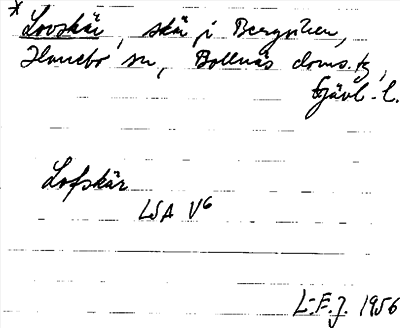 * Lovskär, skär i Bergviken,
Hanebo sn, Bollnäs doms. tg,
Gävl. l.
Lofskär
LSA V6
L.E.J. 1956